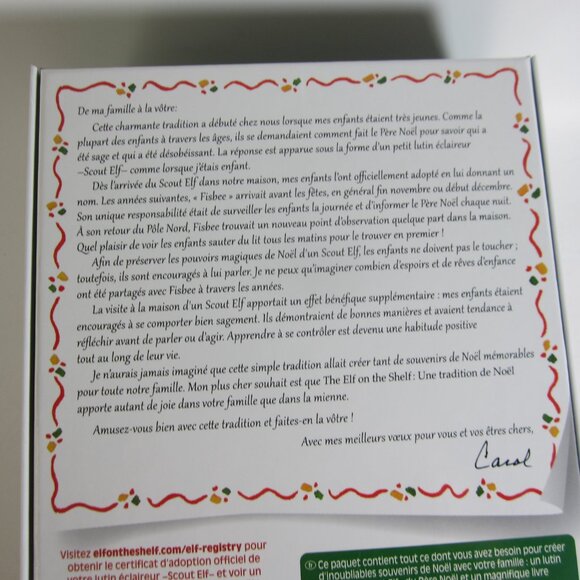 De ma famille à la vôtre:
Cette charmante tradition a débuté chez nous lorsque mes enfants étaient très jeunes. Comme la
plupart des enfants à travers les âges, ils se demandaient comment fait le Père Noël pour savoir qui a
été sage et qui a été désobéissant. La réponse est apparue sous la forme d'un petit lutin éclaireur
–Scout Elf– comme lorsque j'étais enfant.
Dès l'arrivée du Scout Elf dans notre maison, mes enfants l'ont officiellement adopté en lui donnant un
nom. Les années suivantes, « Fisbee » arrivait avant les fêtes, en général fin novembre ou début décembre.
Son unique responsabilité était de surveiller les enfants la journée et d'informer le Père Noël chaque nuit.
À son retour du Pôle Nord, Fisbee trouvait un nouveau point d'observation quelque part dans la maison.
Quel plaisir de voir les enfants sauter du lit tous les matins pour le trouver en premier !
Afin de préserver les pouvoirs magiques de Noël d'un Scout Elf, les enfants ne doivent pas le toucher ;
toutefois, ils sont encouragés à lui parler. Je ne peux qu'imaginer combien d'espoirs et de rêves d'enfance
ont été partagés avec Fisbee à travers les années.
La visite à la maison d'un Scout Elf apportait un effet bénéfique supplémentaire : mes enfants étaient
encouragés à se comporter bien sagement. Ils démontraient de bonnes manières et avaient tendance à
réfléchir avant de parler ou d'agir. Apprendre à se contrôler est devenu une habitude positive
tout au long de leur vie.
Je n'aurais jamais imaginé que cette simple tradition allait créer tant de souvenirs de Noël mémorables
pour toute notre famille. Mon plus cher souhait est que The Elf on the Shelf : Une tradition de Noël
apporte autant de joie dans votre famille que dans la mienne.
Amusez-vous bien avec cette tradition et faites-en la vôtre !
Avec mes meilleurs vœux pour vous et vos êtres chers,
Carol
Visitez elfontheshelf.com/elf-registry pour
obtenir le certificat d'adoption officiel de
votre lutin éclaireur –Scout Elf– et voir un
Ce paquet contient tout ce dont vous avez besoin pour créer
d'inoubliables souvenirs de Noël avec votre famille : un lutin
du Père Noël et un magnifique livre